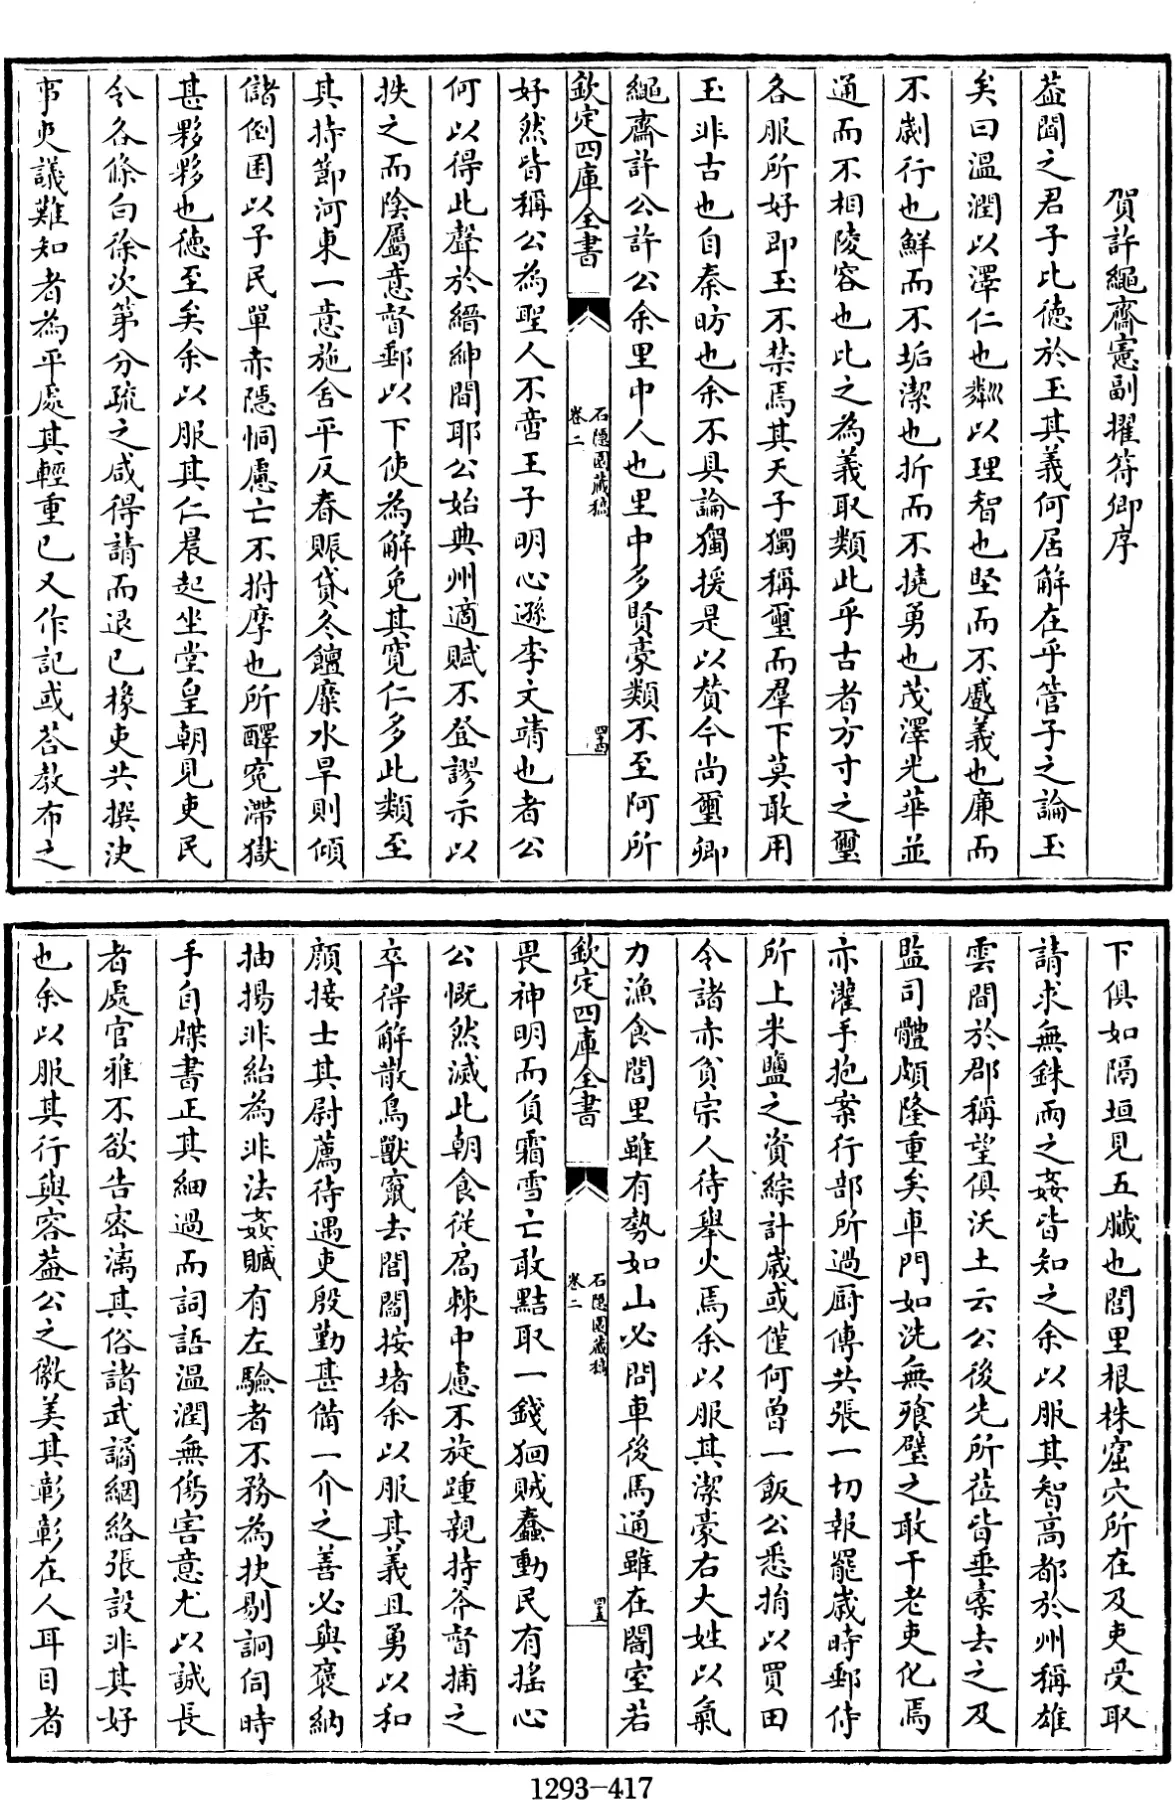 賀許繩齋憲副擢符卿序
葢聞之君子比徳於玉其義何居解在乎管子之論玉
矣曰溫潤以澤仁也粼以理智也堅而不蹙義也廉而
不劌行也鮮而不垢潔也折而不撓勇也茂澤光華並
通而不相陵容也此之為義取類此乎古者方寸之璽
各服所好即玉不禁焉其天子獨稱璽而羣下莫敢用
玉非古也自秦昉也余不具論獨援是以贊今尚璽卿
繩齋許公許公余里中人也里中多賢豪類不至阿所
欽定四庫全書
石隱園藏稿
卷二
四十四
好然皆稱公為聖人不啻王子明心遜李文靖也者公
何以得此聲於縉紳間耶公始典州適賦不登謬示以
抶之而陰屬意督郵以下使為解免其寛仁多此類至
其持節河東一意施舍平反春賑貸冬饘糜水旱則傾
儲倒囷以予民單赤隠恫慮亡不拊摩也所醳寃滯獄
甚夥夥也徳至矣余以服其仁晨起坐堂皇朝見吏民
令各條白徐次第分疏之咸得請而退已掾吏共撰決
事爰議難知者為平處其輕重已又作記或荅教布之
下俱如隔垣見五臟也閭里根株窟穴所在及吏受取
請求無銖兩之姦皆知之余以服其智高都於州稱雄
雲間於郡稱望俱沃土云公後先所莅皆垂橐去之及
監司體頗隆重矣車門如洗無飱璧之敢干老吏化焉
亦灌手抱案行部所過厨傳共張一切報罷嵗時郵侍
所上米鹽之資綜計嵗或僅何曾一飯公悉捐以買田
令諸赤貧宗人待舉火焉余以服其潔豪右大姓以氣
力漁食閭里雖有勢如山必問車後馬通雖在闇室若
欽定四庫全書
石隱園藏稿
卷二
四十五
畏神明而負霜雪亡敢㸃取一錢狥賊蠢動民有揺心
公慨然滅此朝食從扄棘中慮不旋踵親持斧督捕之
卒得解散鳥獸竄去閭閻按堵余以服其義且勇以和
顔接士其尉薦待遇吏殷勤甚備一介之善必與褒納
抽揚非紿為非法姦贓有左驗者不務為抉剔詗伺時
手自牒書正其細過而詞語温潤無傷害意尤以誠長
者處官雅不欲告宻漓其俗諸武譎網絡張設非其好
也余以服其行與容葢公之徽美其彰彰在人耳目者